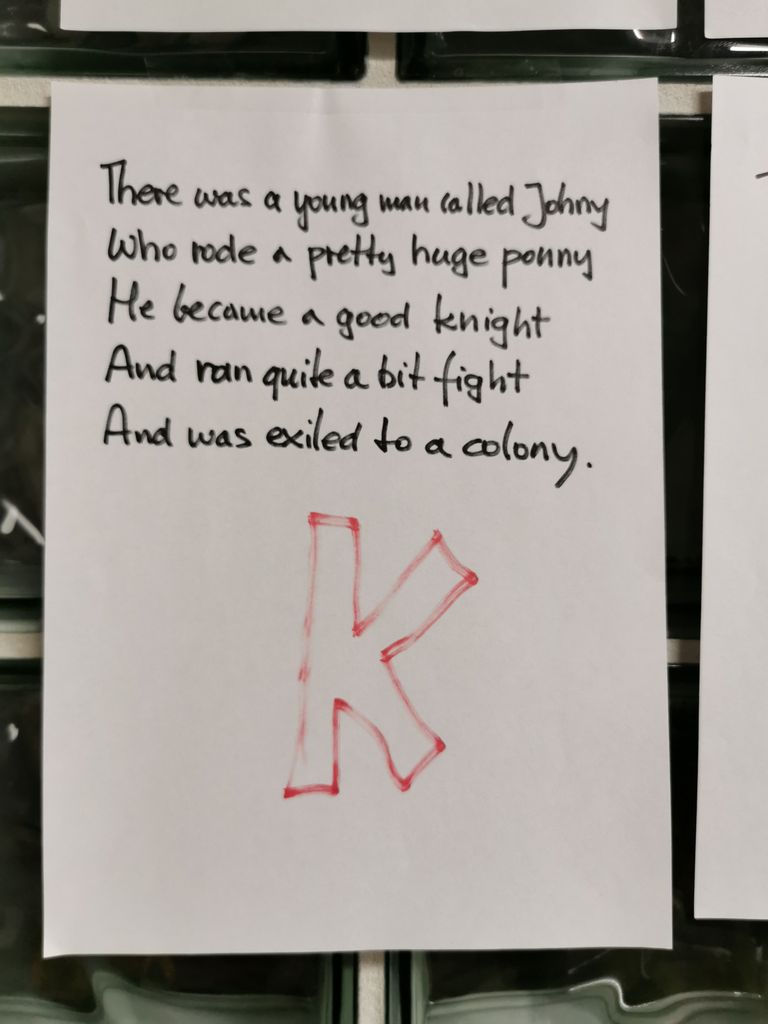 There was a young man called Johny
Who rode a pretty huge ponny
He became a good knight
And ran quite a bit fight
And was exiled to a colony.
K